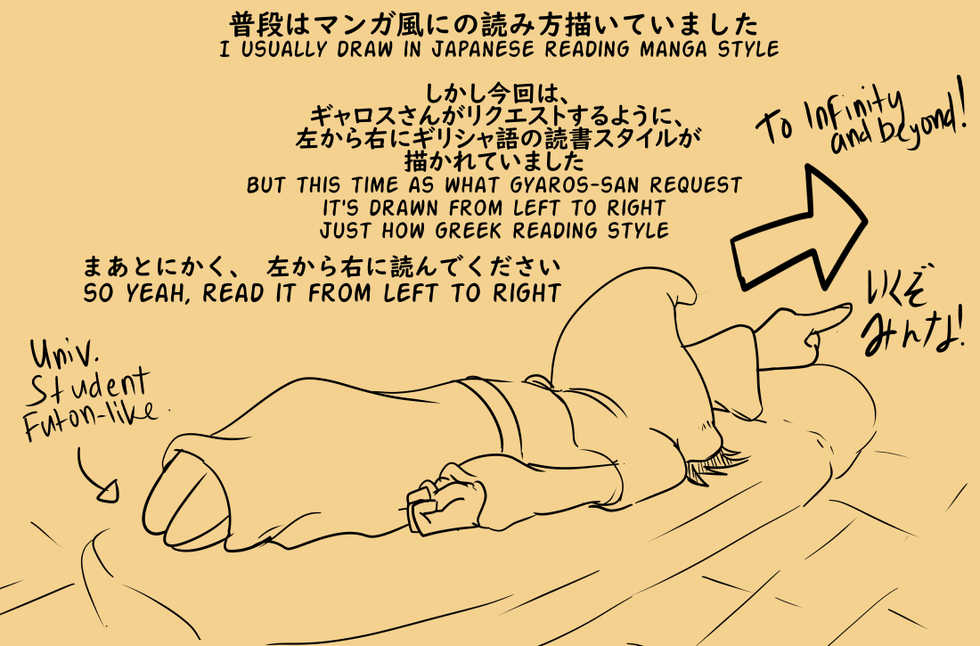 普段はマンガ風にの読み方描いていました
I USUALLY DRAW IN JAPANESE READING MANGA STYLE
しかし今回は、
ギャロスさんがリクエストするように、
左から右にギリシャ語の読書スタイルが
描かれていました
BUT THIS TIME AS WHAT GYAROS-SAN REQUEST
IT'S DRAWN FROM LEFT TO RIGHT
JUST HOW GREEK READING STYLE
まあとにかく、 左から右に読んでください
SO YEAH, READ IT FROM LEFT TO RIGHT
To Infinity
and beyond!
いくぞ
みんな!
Univ.
Student
Futon-like.